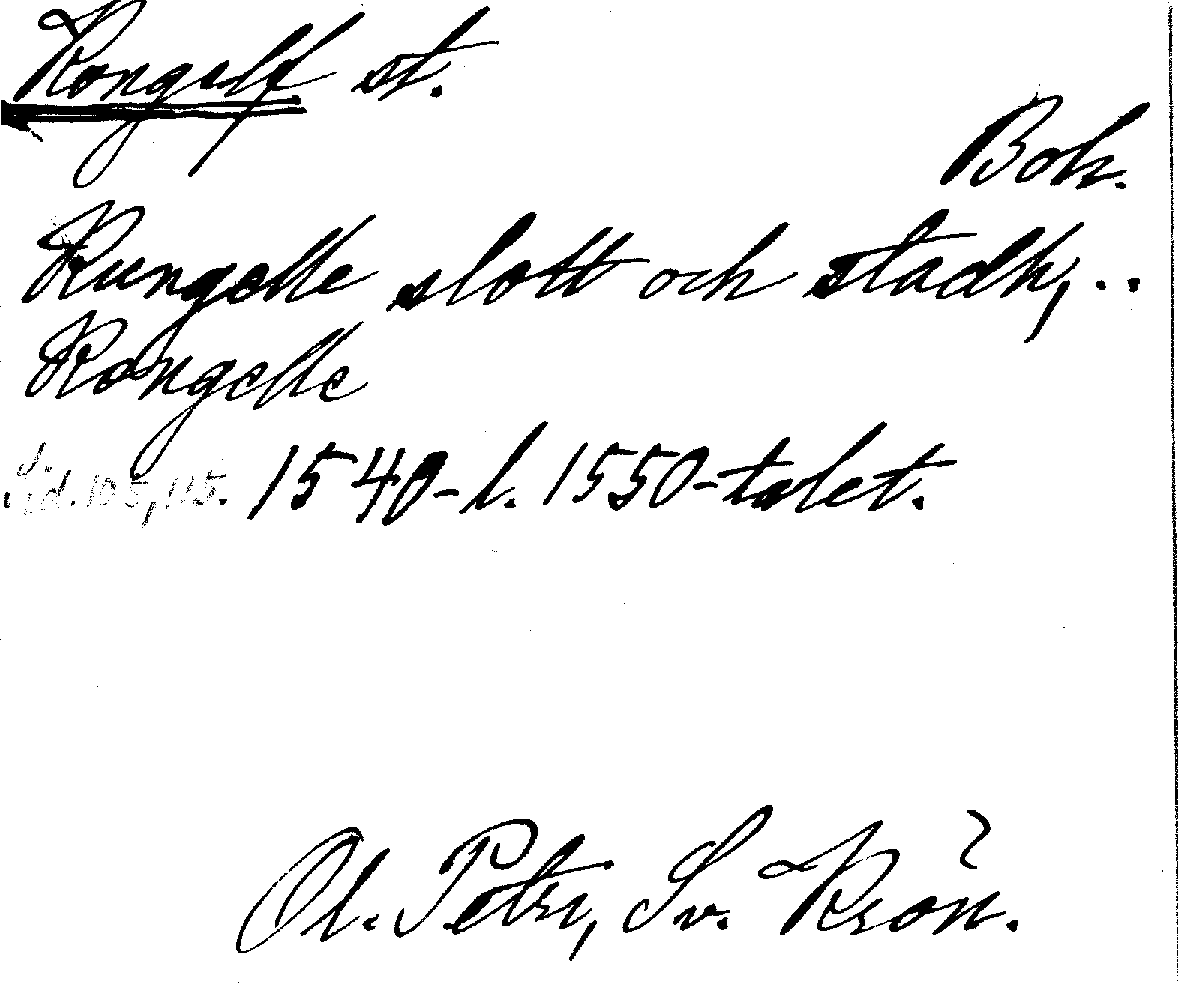 Kongälf st.
Boh.
Kungelle slott och stadh, ..
Kongelle
Sid. 105, 115. 1540- l. 1550-talet.
Ol. Petri, Sv. Krön.